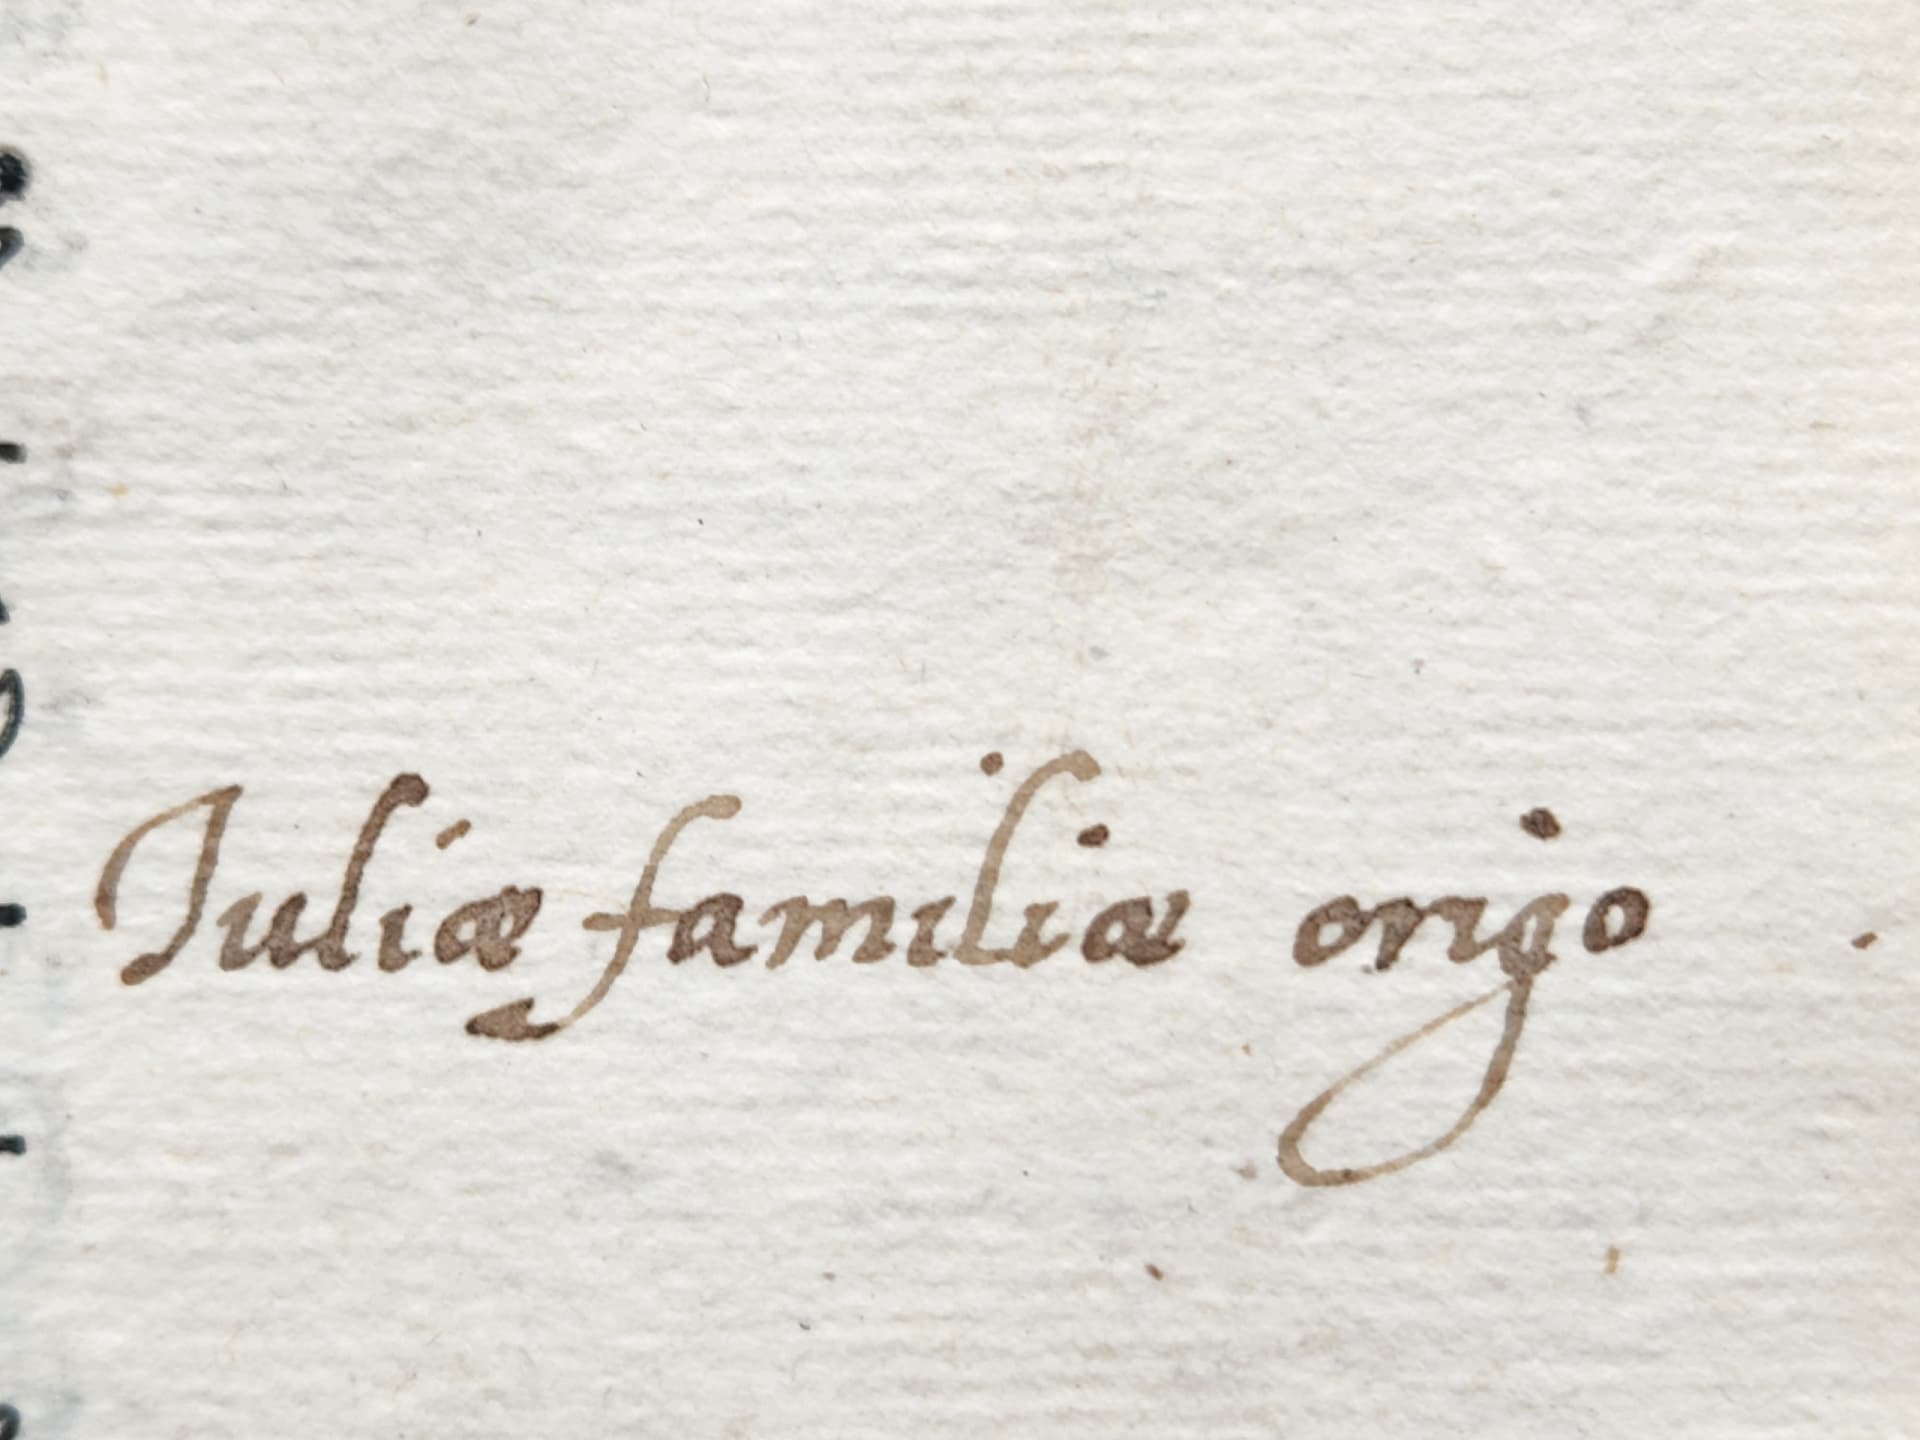 Iuliæ familiæ origo